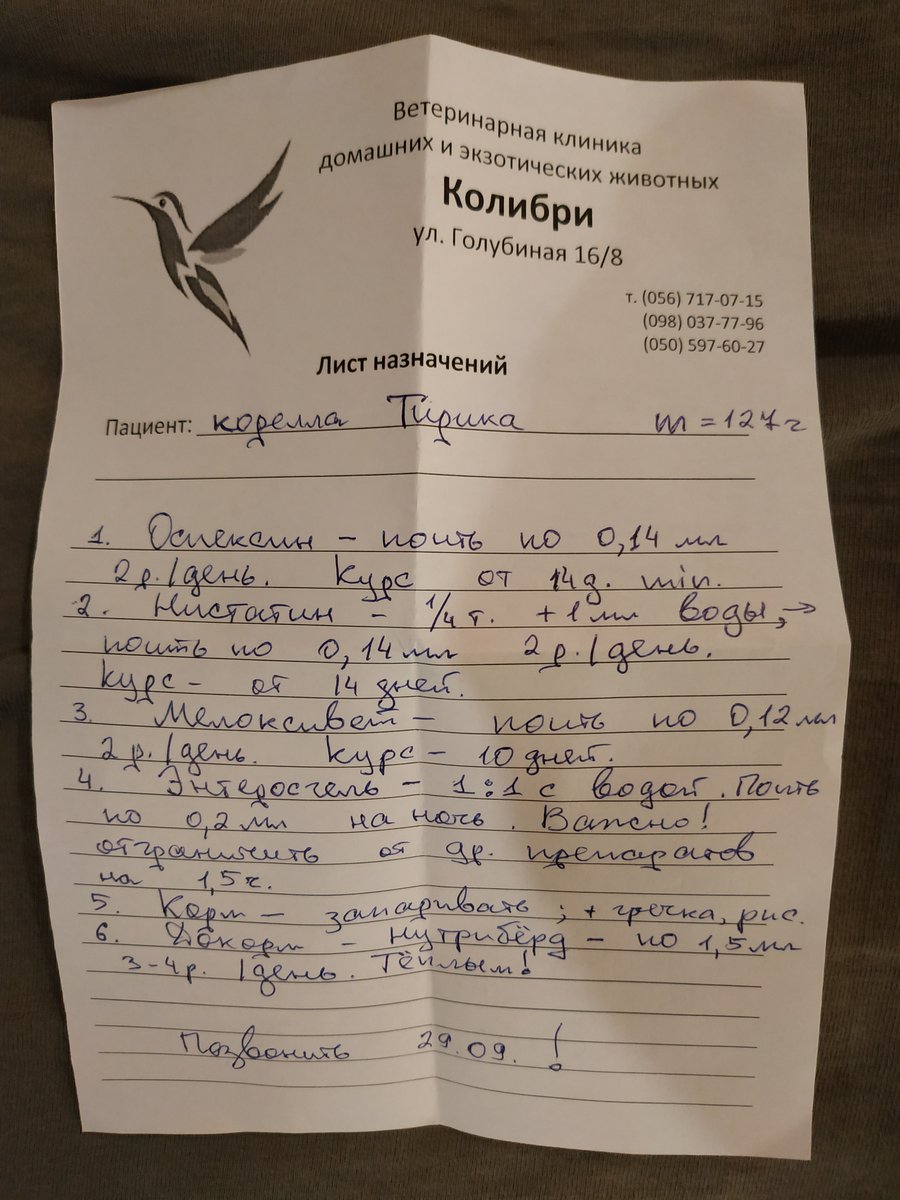 Ветеринарная клиника
домашних и экзотических животных
Колибри
ул. Голубиная 16/8
т. (056) 717-07-15
(098) 037-77-96
(050) 597-60-27
Лист назначений
Пациент: корелла Тирика m = 127 г
1. Оспексин – поить по 0,14 мл
2 р./день. Курс от 14 д. min.
2. Нистатин – 1/4 т. + 1 мл воды, →
поить по 0,14 мл 2 р./день.
Курс – от 14 дней.
3. Мелоксивет – поить по 0,12 мл
2 р./день. Курс – 10 дней.
4. Энтеросгель – 1:1 с водой. Поить
по 0,2 мл на ночь. Важно!
отграничить от др. препаратов
на 1,5 ч.
5. Корм – запаривать; + гречка, рис.
6. Докорм – нутриБёрд – по 1,5 мл
3-4 р. /день. Тёплым!
Позвонить 29.09. !